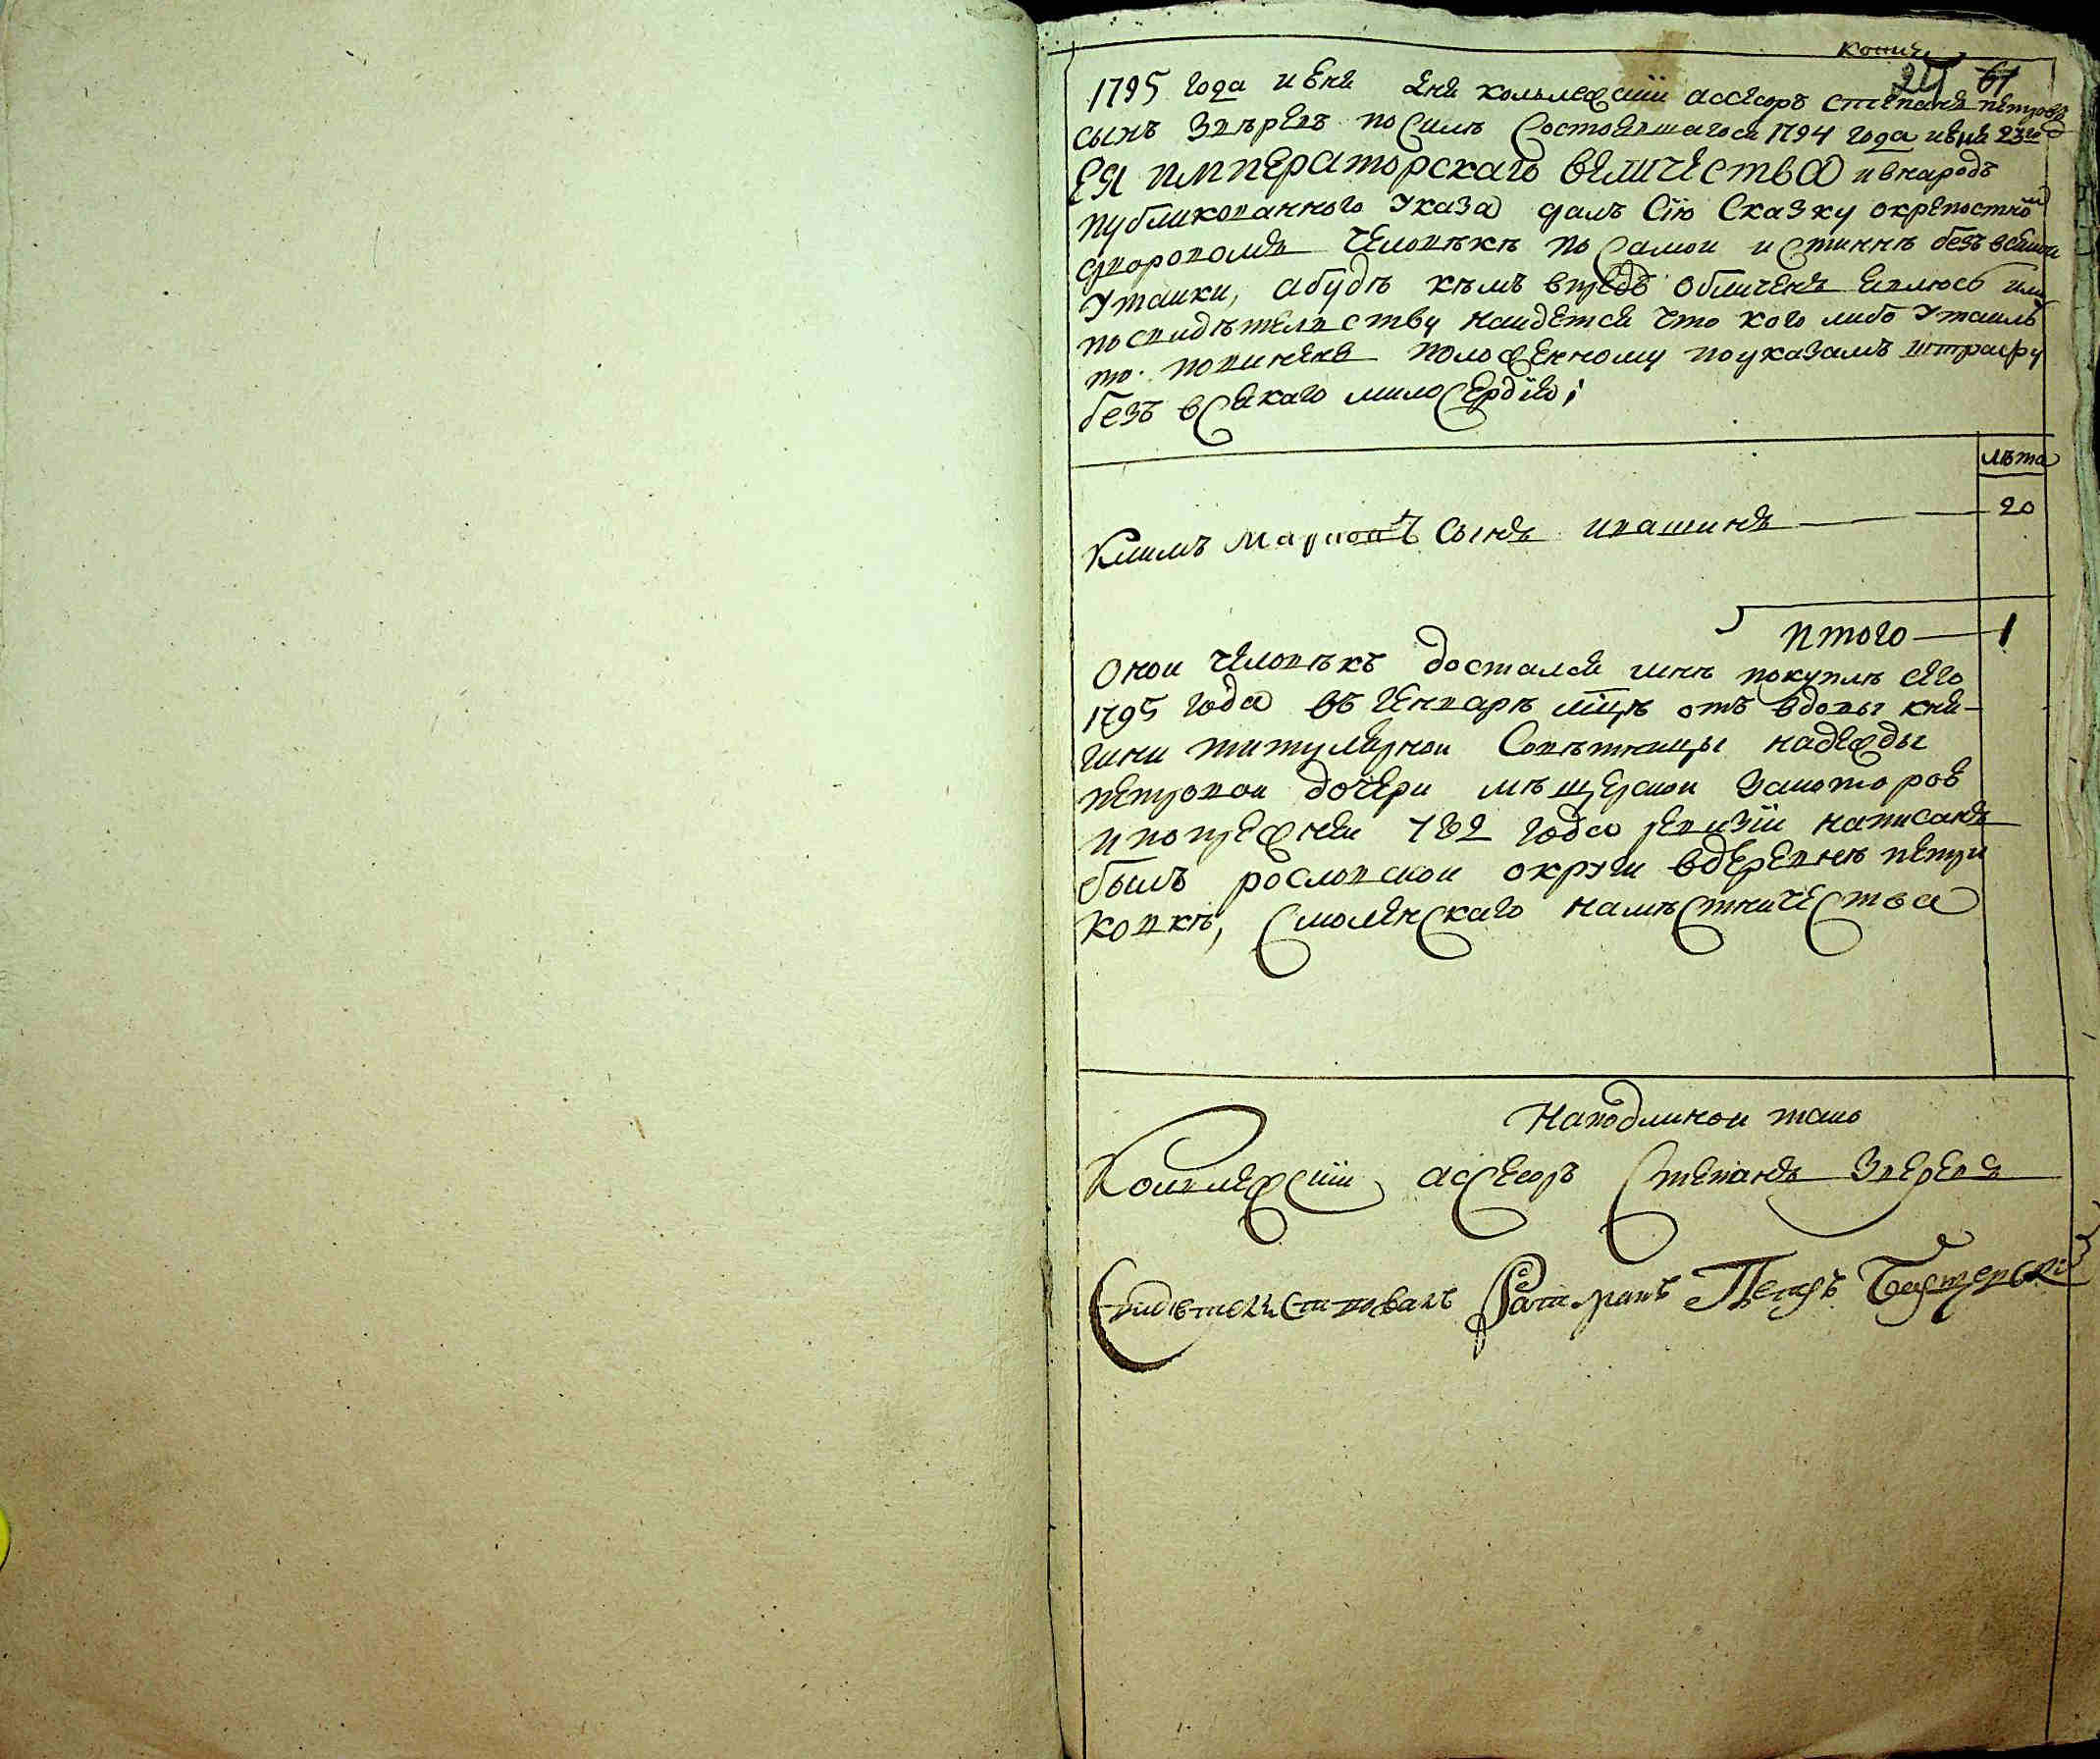 копия
1795 года июня дня кольлежскии ассесоръ степанъ петровъ
сынъ Звѣревъ по силѣ Состоявшагося 1794 года июня 23го
ЕЯ ИМПЕРАТОРСКАГО ВЕЛИЧЕСТВА и внародъ
публикованного Указа далъ Сїю Сказку окрепостномъ
дворовомъ Человѣке по Самои иСтиннѣ безъ всякои
Утаики, абудѣ кѣмъ впредь обличенъ явлюсь или
посвидѣтелвству наидется что кого либо Утаилъ
то повиненъ положенному поуказамъ штрафу
безъ вСякаго милоСердїя;
лѣта
Климъ Сынъ ивашинъ 20
Итого 1
Оной Человѣкъ достался мнѣ покупкѣ сего
1795 года въ генварѣ мцѣ отъ вдовы кня-
гини титулярнои Совѣтницы надежды
петровои дочери мѣщерскои
ипопрежнеи 782 года ревизїи написанъ
былъ рославскои округи вдеревнѣ петри
ковкѣ, Смоленскаго намѣСтничеСтва
Наподлинои тако
Колвлежскии асСесоръ Степанъ Зверевъ
Свидѣтелствовалъ Петръ